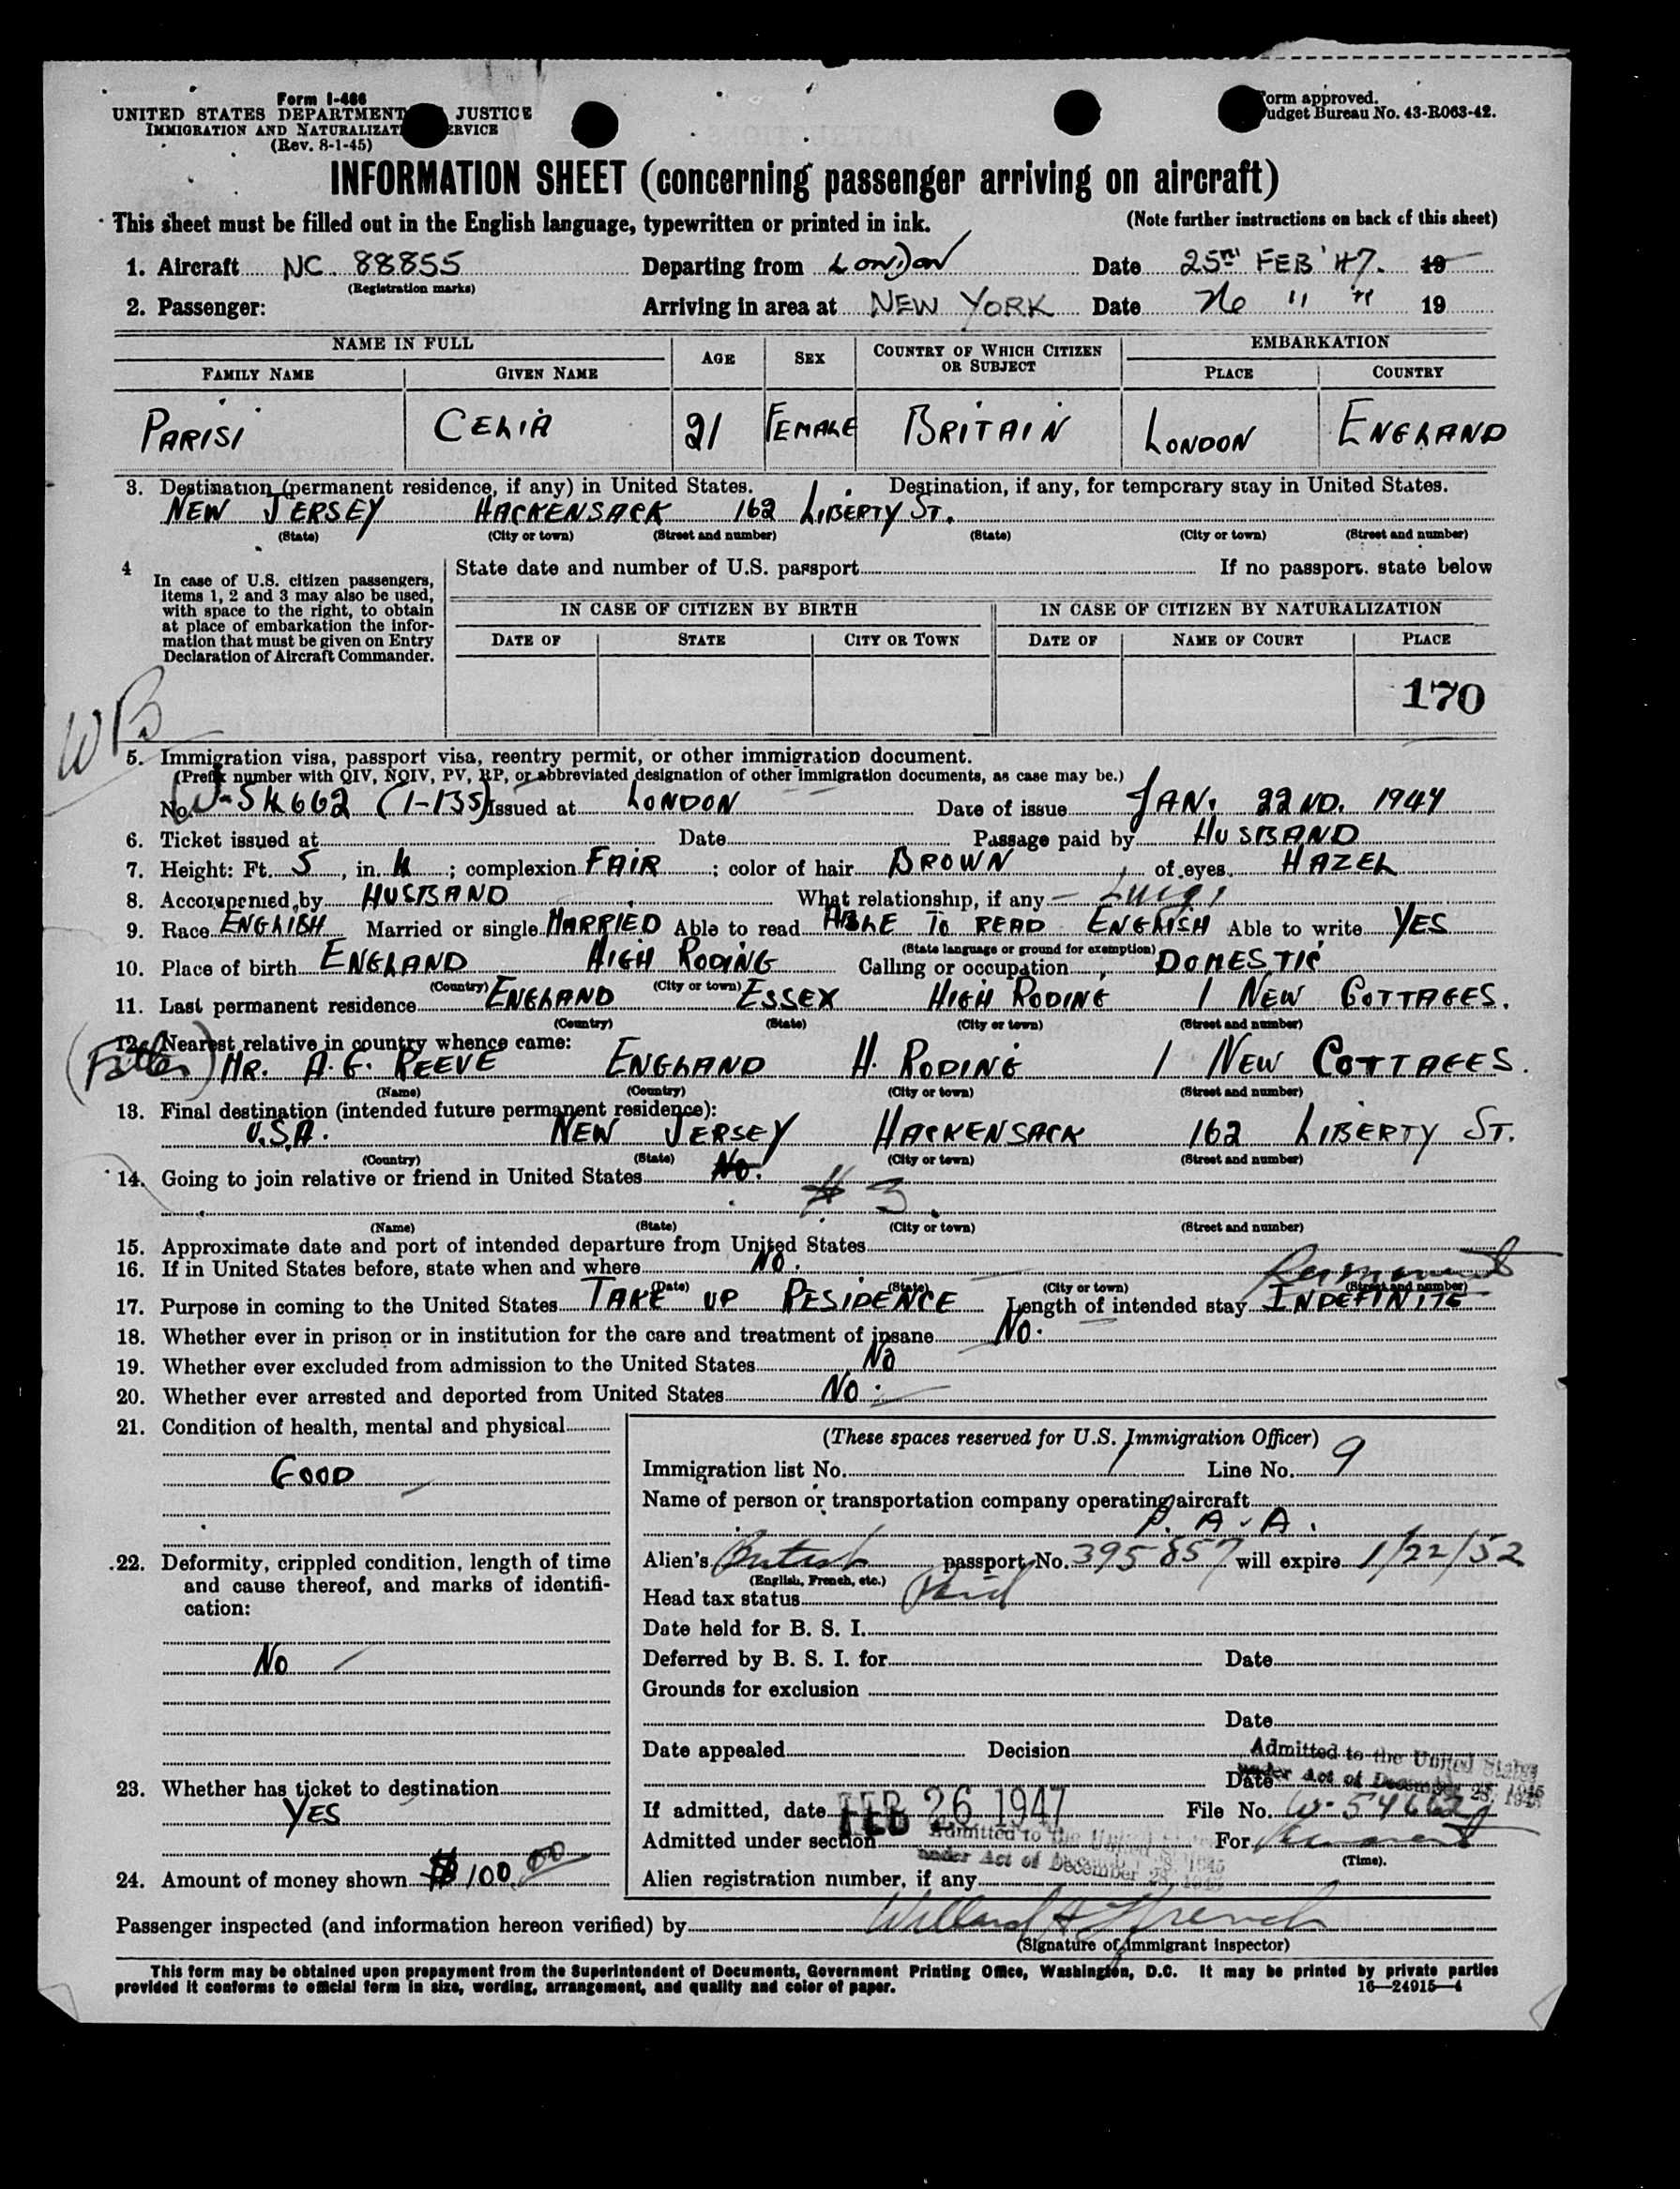 Form I-466
UNITED STATES DEPARTMENT JUSTICE
IMMIGRATION AND NATURALIZAT ERVICE
(Rev. 8-1-45)
orm approved.
udget Bureau No. 43-R063-42.
INFORMATION SHEET (concerning passenger arriving on aircraft)
This sheet must be filled out in the English language, typewritten or printed in ink. (Note further instructions on back of this sheet)
1. Aircraft NC. 88855 Departing from LONDON Date 25TH FEB '47. 19
(Registration marks)
2. Passenger: Arriving in area at NEW YORK Date 26 " " 19
NAME IN FULL AGE SEX COUNTRY OF WHICH CITIZEN OR SUBJECT EMBARKATION
FAMILY NAME GIVEN NAME PLACE COUNTRY
PARISI CELIA 21 FEMALE BRITAIN LONDON ENGLAND
3. Destination (permanent residence, if any) in United States. Destination, if any, for temporary stay in United States.
NEW JERSEY HACKENSACK 162 LIBERTY ST.
(State) (City or town) (Street and number) (State) (City or town) (Street and number)
4 In case of U.S. citizen passengers,
items 1, 2 and 3 may also be used,
with space to the right, to obtain
at place of embarkation the infor-
mation that must be given on Entry
Declaration of Aircraft Commander.
State date and number of U.S. passport If no passport. state below
IN CASE OF CITIZEN BY BIRTH IN CASE OF CITIZEN BY NATURALIZATION
DATE OF STATE CITY OR TOWN DATE OF NAME OF COURT PLACE
170
WB
5. Immigration visa, passport visa, reentry permit, or other immigration document.
(Prefix number with QIV, NQIV, PV, RP, or abbreviated designation of other immigration documents, as case may be.)
No. W-54662 (1-135) Issued at LONDON Date of issue JAN. 22ND. 1947
6. Ticket issued at Date Passage paid by HUSBAND
7. Height: Ft. 5, in. 4; complexion FAIR; color of hair BROWN of eyes HAZEL
8. Accompanied by HUSBAND What relationship, if any - Luigi
9. Race ENGLISH Married or single MARRIED Able to read ABLE TO READ ENGLISH Able to write YES
(State language or ground for exemption)
10. Place of birth ENGLAND HIGH RODING Calling or occupation DOMESTIC
(Country) (City or town)
11. Last permanent residence ENGLAND ESSEX HIGH RODING 1 NEW COTTAGES.
(Country) (State) (City or town) (Street and number)
12. Nearest relative in country whence came:
(Father) MR. A. G. REEVE ENGLAND H. RODING 1 NEW COTTAGES.
(Name) (Country) (City or town) (Street and number)
13. Final destination (intended future permanent residence):
U.S.A. NEW JERSEY HACKENSACK 162 LIBERTY ST.
(Country) (State) (City or town) (Street and number)
14. Going to join relative or friend in United States No.
# 3.
(Name) (State) (City or town) (Street and number)
15. Approximate date and port of intended departure from United States
16. If in United States before, state when and where NO.
(Date) (State) (City or town) (Street and number)
Permanent
17. Purpose in coming to the United States TAKE UP RESIDENCE Length of intended stay INDEFINITE
18. Whether ever in prison or in institution for the care and treatment of insane NO.
19. Whether ever excluded from admission to the United States NO
20. Whether ever arrested and deported from United States NO.
21. Condition of health, mental and physical
GOOD
22. Deformity, crippled condition, length of time
and cause thereof, and marks of identifi-
cation:
NO
23. Whether has ticket to destination
YES
24. Amount of money shown $100.00
(These spaces reserved for U.S. Immigration Officer)
Immigration list No. 1 Line No. 9
Name of person or transportation company operating aircraft
P. A. A.
Alien's British passport No. 395857 will expire 1/22/52
(English, French, etc.)
Head tax status Paid
Date held for B. S. I.
Deferred by B. S. I. for Date
Grounds for exclusion
Date
Date appealed Decision
Admitted to the United States
under Act of December 28, 1945
Date
If admitted, date FEB 26 1947 File No. W-54662
Admitted under section For Permanent
Admitted to the United States
under Act of December 28, 1945
(Time).
Alien registration number, if any
Passenger inspected (and information hereon verified) by Willard H French
(Signature of immigrant inspector)
This form may be obtained upon prepayment from the Superintendent of Documents, Government Printing Office, Washington, D.C. It may be printed by private parties
provided it conforms to official form in size, wording, arrangement, and quality and color of paper. 16—24915-4